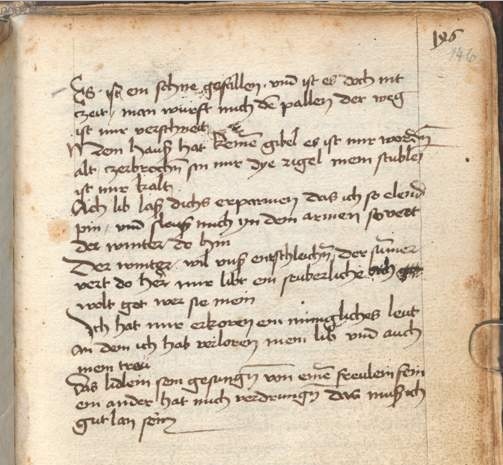 146
Es ist ein schne gefallen vnd ist es doch nit
zeit man würft mich dē pallen der weg
ist mir verschneit
Mein hauß hat keine gibel es ist mir wordn̄
alt czerbrochn̄ sin mir dye rigel mein stublei
ist mir kalt
Ach lib laß dichs erparmen das ich so elend
pin vnd sleuß mich yn dein armen so vert
der winter do hin
Der winter wil vnß entschleichn̄ der sum̄er
vert do her mir libt ein seuberliche
wolt got wer sie mein
Ich hat mir erkoren ein minnigliches leut
an dem ich hab verloren mein lib vnd auch
mein treu
Das lidlein sein gesungn̄ von eine freulein fein
ein ander hat mich verdrungn̄ das muß ich
gut lan sein